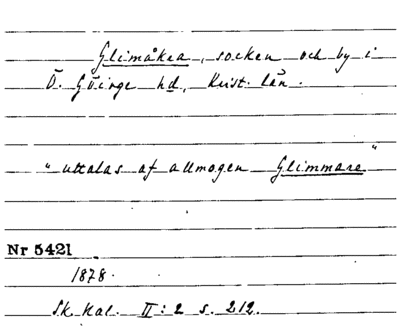 Glimåkra, socken och by i
Ö. Göinge hd, Krist. län.
"uttalas af allmogen Glimmare"
Nr 5421
1878.
Sk. Kal. II: 2 s. 212.